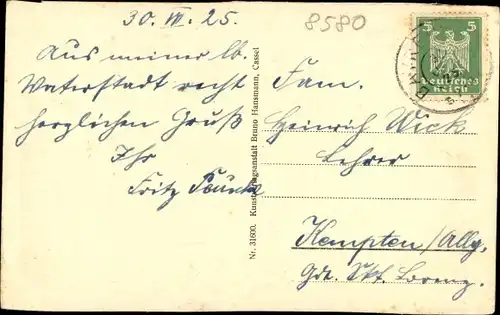 30. VII. 25.
8580
Aus meiner lb.
Vaterstadt recht
herzlichen Gruß
Ihr
Fritz
Nr. 31600. Kunstverlagsanstalt Bruno Hansmann, Cassel
5 5
Deutsches
Reich
Fam.
Heinrich Wick
Lehrer
Kempten/Allg.